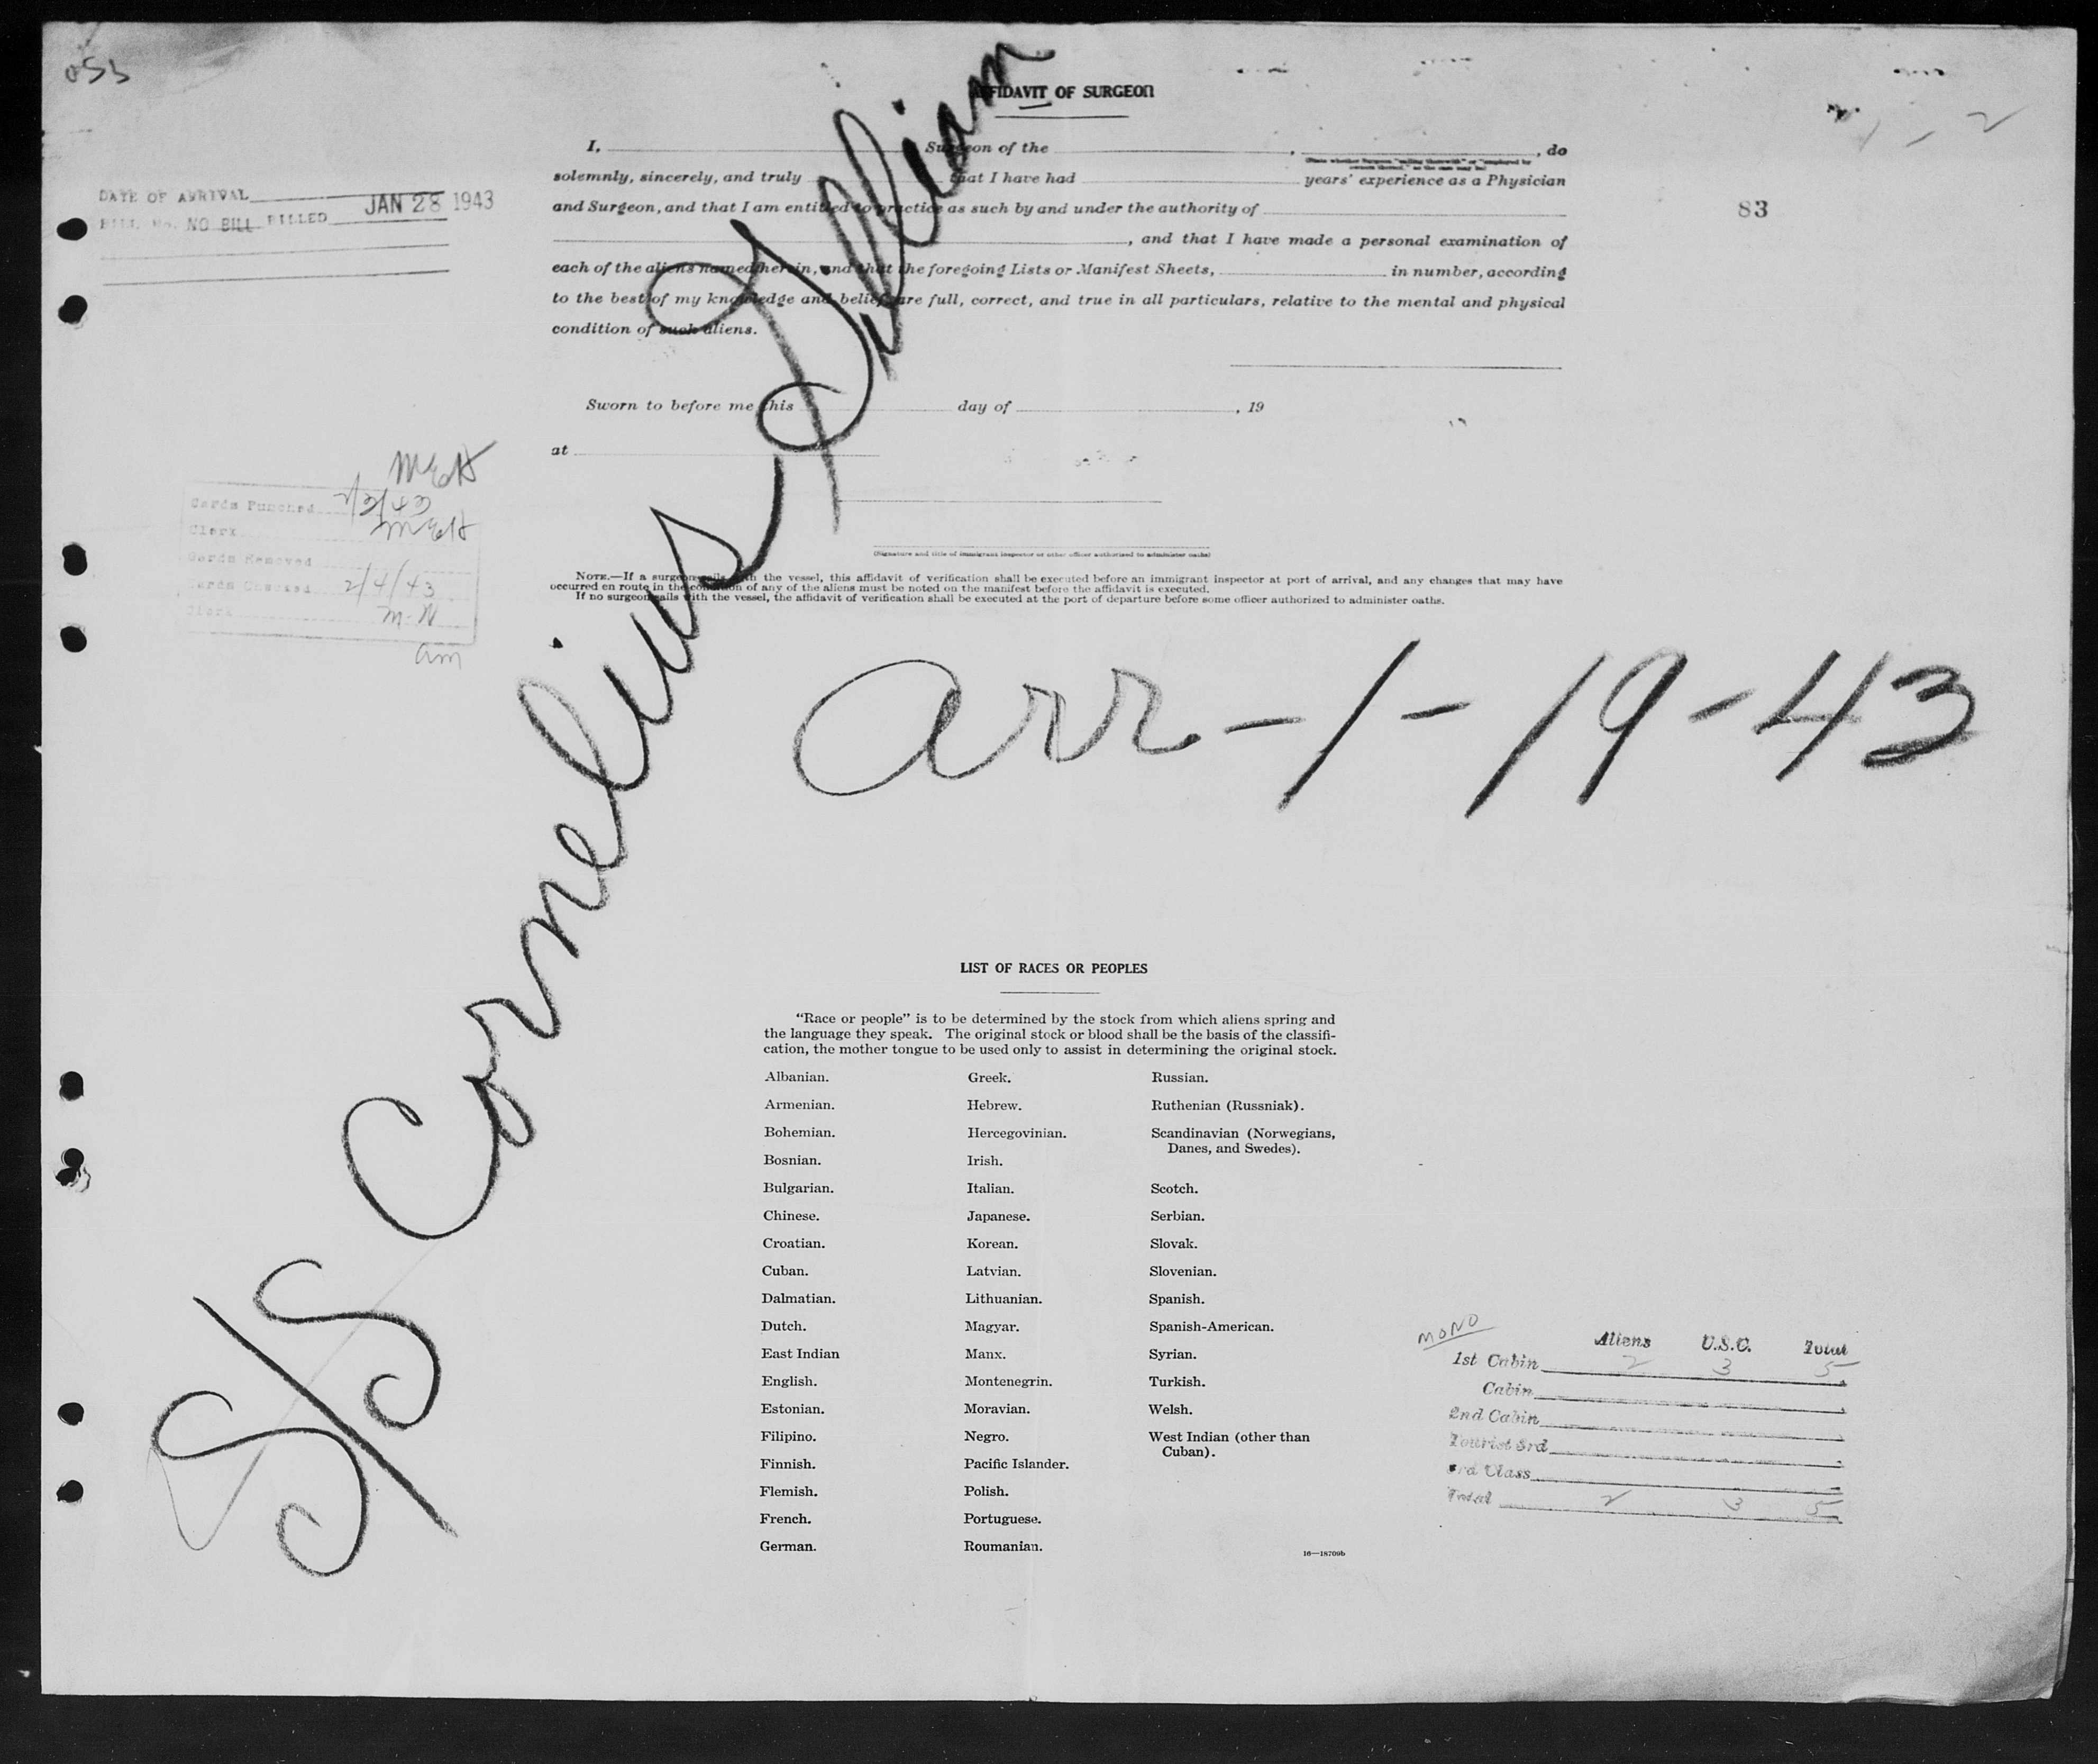 AFFIDAVIT OF SURGEON
I, Surgeon of the , , do
solemnly, sincerely, and truly that I have had years' experience as a Physician
and Surgeon, and that I am entitled to practice as such by and under the authority of
, and that I have made a personal examination of
each of the aliens named herein, and that the foregoing Lists or Manifest Sheets, in number, according
to the best of my knowledge and belief, are full, correct, and true in all particulars, relative to the mental and physical
condition of such aliens.
Sworn to before me this day of , 19
at
(Signature and title of immigrant inspector or other officer authorized to administer oaths)
NOTE.—If a surgeon sails with the vessel, this affidavit of verification shall be executed before an immigrant inspector at port of arrival, and any changes that may have
occurred en route in the condition of any of the aliens must be noted on the manifest before the affidavit is executed.
If no surgeon sails with the vessel, the affidavit of verification shall be executed at the port of departure before some officer authorized to administer oaths.
83
1 - 2
DATE OF ARRIVAL
BILL No. NO BILL BILLED JAN 28 1943
MEH
Cards Punched 2/3/43
Clerk MEH
Cards Removed
Cards Checked 2/4/43
Clerk M-N
am
S/S Cornelius
arr-1-19-43
LIST OF RACES OR PEOPLES
"Race or people" is to be determined by the stock from which aliens spring and
the language they speak. The original stock or blood shall be the basis of the classifi-
cation, the mother tongue to be used only to assist in determining the original stock.
Albanian.
Armenian.
Bohemian.
Bosnian.
Bulgarian.
Chinese.
Croatian.
Cuban.
Dalmatian.
Dutch.
East Indian
English.
Estonian.
Filipino.
Finnish.
Flemish.
French.
German.
Greek.
Hebrew.
Hercegovinian.
Irish.
Italian.
Japanese.
Korean.
Latvian.
Lithuanian.
Magyar.
Manx.
Montenegrin.
Moravian.
Negro.
Pacific Islander.
Polish.
Portuguese.
Roumanian.
Russian.
Ruthenian (Russniak).
Scandinavian (Norwegians,
Danes, and Swedes).
Scotch.
Serbian.
Slovak.
Slovenian.
Spanish.
Spanish-American.
Syrian.
Turkish.
Welsh.
West Indian (other than
Cuban).
16—18709b
MONO
Aliens U.S.C. Total
1st Cabin 2 3 5
Cabin
2nd Cabin
Tourist 3rd
3rd Class
Total 2 3 5